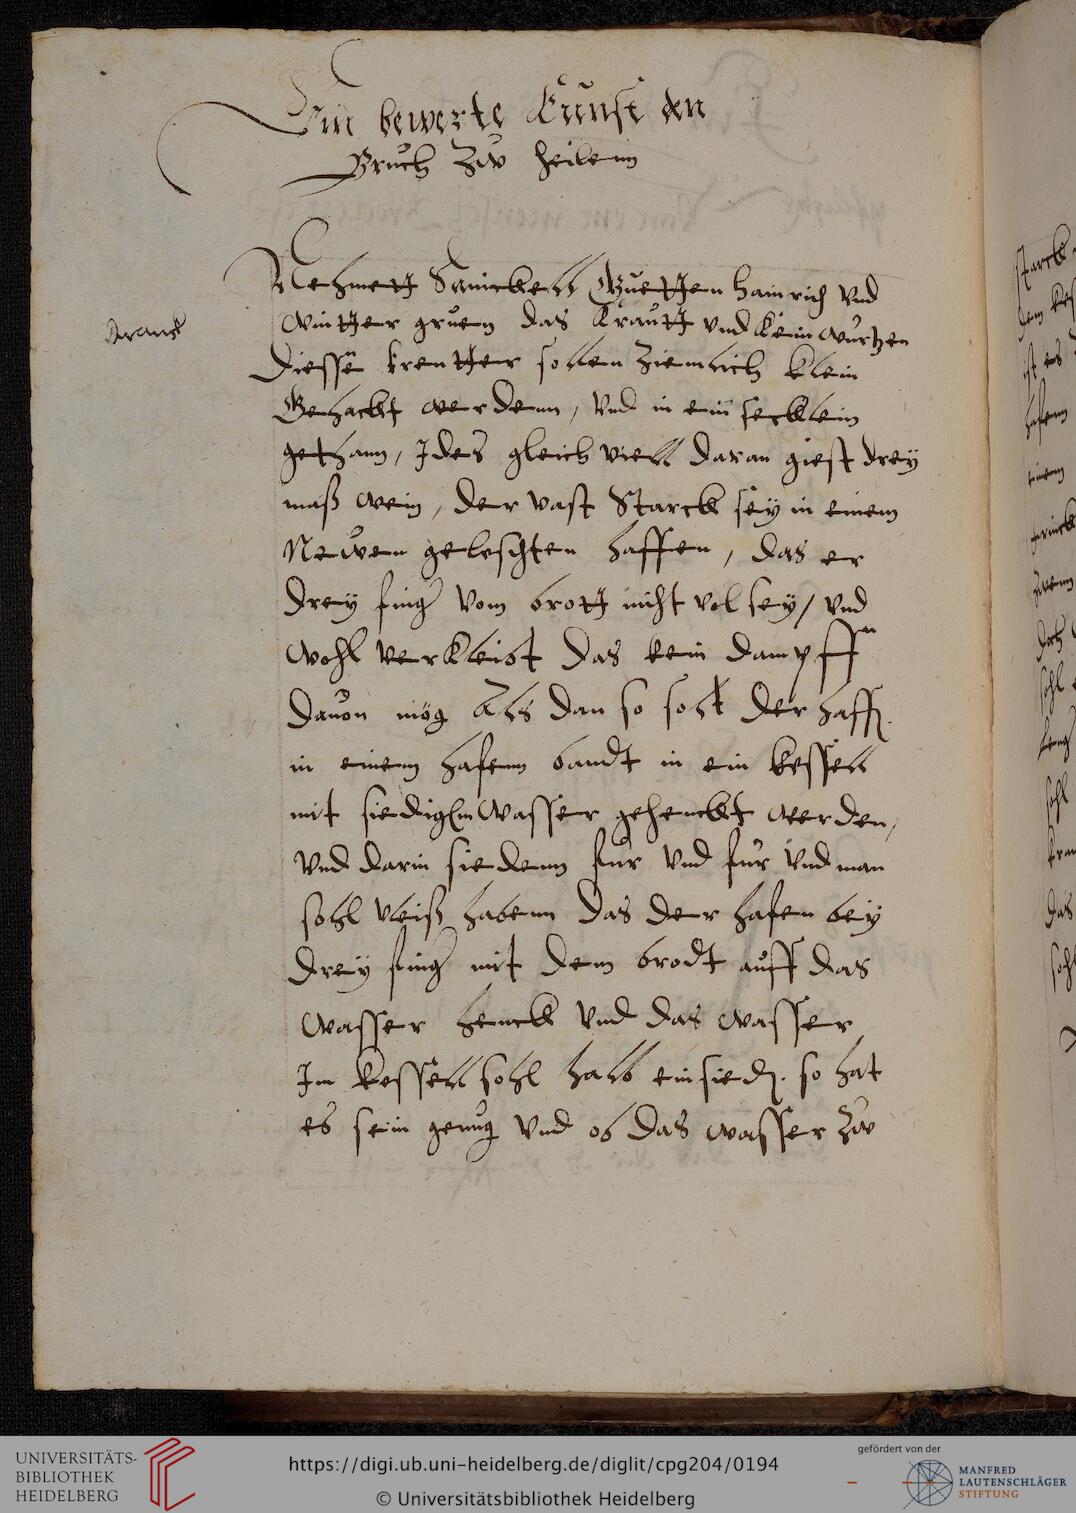 Ein bewerte Kunst den
Bruch zw heilenn
Nehmett Sanickell Guetten hainrich vnd
wintter gruen das Krautt vnd kein wurtzen
Diesse kreutter sollen ziemlich klein
Gehackt werdenn, vnd in ein secklein
gethann, Jdes gleich viell daran giest drey
maß wein, der vast Starck sey in einem
Newen geleschten haffen, das er
drey fing vom brott nicht vol sey, vnd
wohl verkleibt das kein dampff
dauon mög Als dan so solt der haff.
in einem hafenn bandt in ein kessell
mit siedig wasser gehenckt werden,
vnd darin siedenn fur vnd fur vnd man
sohl vleiß habenn das der hafen bey
drey fing mit dem brodt auff das
wasser henck vnd das wasser
Im kessell sohl halb einsied. so hat
es sein genug vnd ob das wasser zw
starck
dem
ist es
hafenn
einem
sohl
sohl
das
UNIVERSITÄTS-
BIBLIOTHEK
HEIDELBERG
https://digi.ub.uni-heidelberg.de/diglit/cpg204/0194
© Universitätsbibliothek Heidelberg
gefördert von der
MANFRED
LAUTENSCHLÄGER
STIFTUNG